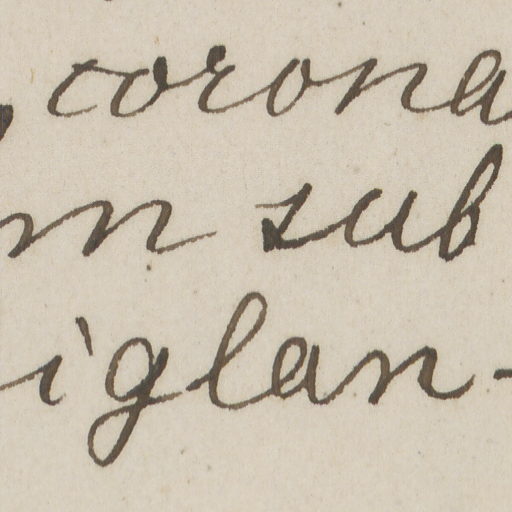 , corona
m sub
iglan-